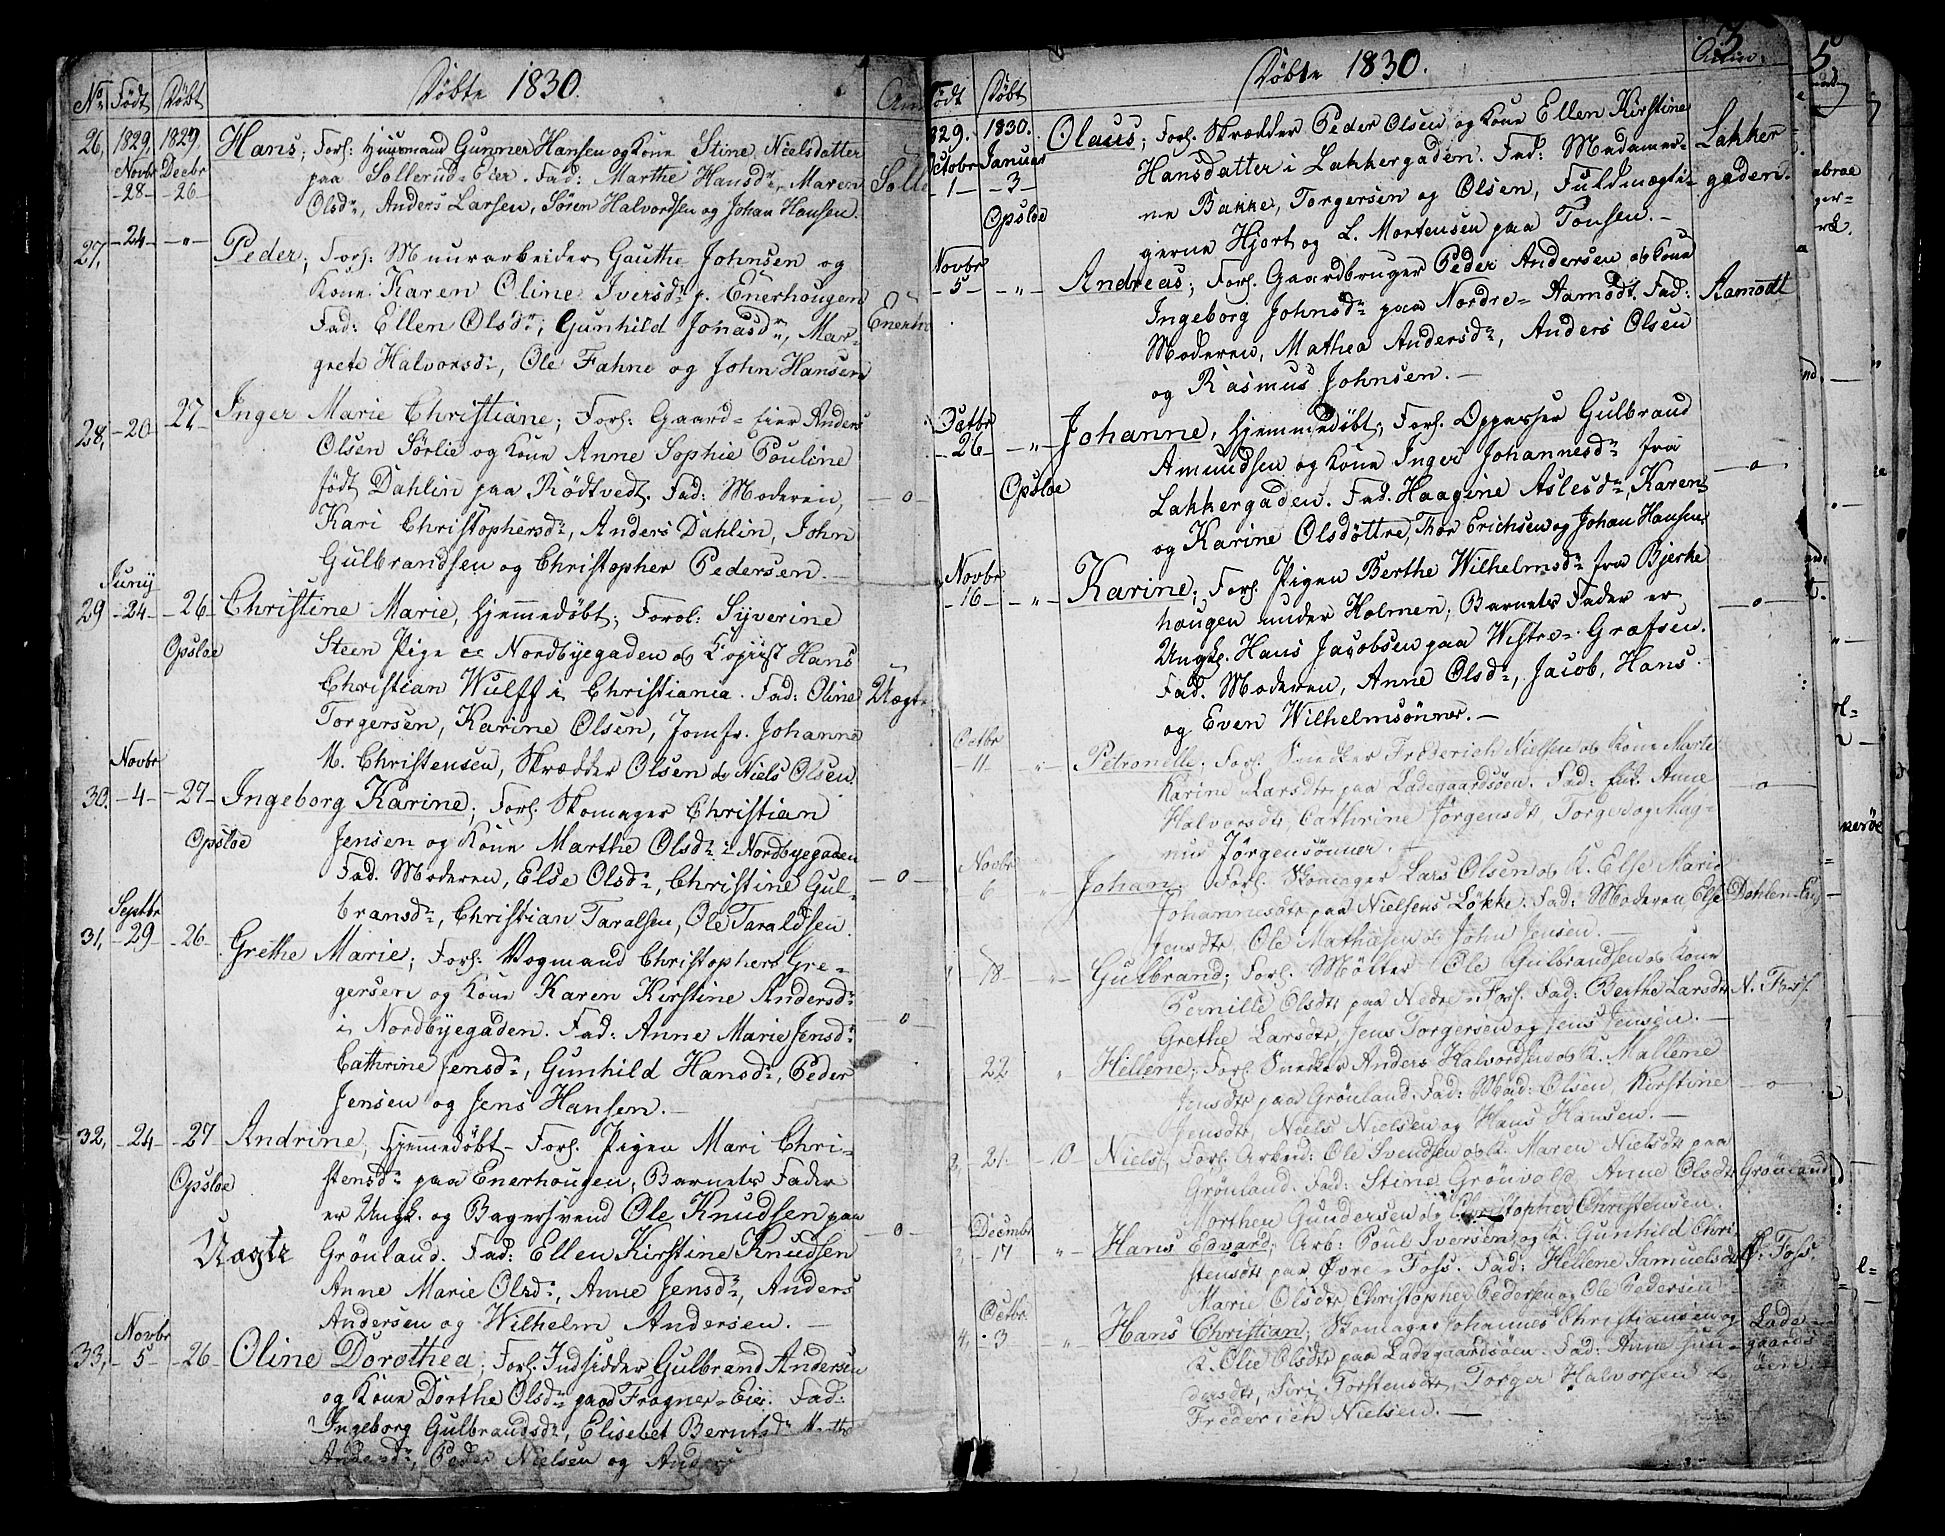 Döbte 1830.
No. Födt Döbt
26, 1829. 1829. Hans; Forl: Huusmand Gunner Hansen og Kone Stine Nielsdatter
Novbr Decbr paa Sollerud-Eier. Fad: Marthe Hansdr, Maren
-28- -26- Olsdr, Anders Larsen, Sören Halvordsen og Johan Hansen.
27, -24- -"- Peder; Forl: Muurarbeider Gauthe Johnsen og
Kone Karen Oline Iversdr p. Enerhougen
Fad: Ellen Olsdr; Gunhild Jonasdr, Mar-
grete Halvorsdr, Ole Fahne og John Hansen
28, -20- 27- Inger Marie Christiane; Forl: Gaard-eier Anders
Olsen Sörlie og Kone Anne Sophie Pouline
födt Dahlin paa Rödtvedt. Fad: Moderen,
Kari Christophersdr, Anders Dahlin, John
Gulbrandsen og Christopher Pedersen.-
Junij
29 -24- -26- Christine Marie, hjemmedöbt; Forl: Syverine
Opsloe Steen Pige i Nordbyegaden og Kopiist Hans
Christian Wulff i Christiania. Fad: Oline Uægte
Torgersen, Karine Olsen, Jomfr. Johanne
M. Christensen, Skrædder Olsen og Niels Olsen.
Novbr
30. -4- -27- Ingeborg Karine; Forl. Skomager Christian
Opsloe Jensen og Kone Marthe Olsdr i Nordbyegaden
Fad. Moderen, Else Olsdr, Christine Gul- -o-
bransdr, Christian Taralsen, Ole Taraldsen.
Septbr
31, -29 -26- Grethe Marie; Forl: Vogmand Christopher Gre-
gersen og Kone Karen Kirstine Andersdr
i Nordbyegaden. Fad: Anne Marie Jensdr -o-
Cathrine Jensdr, Gunhild Hansdr, Peder
Jensen og Jens Hansen.-
32, -24- -27 Andrine, hjemmedöbt- Forl. Pigen Mari Chri-
Opsloe stensdr paa Enerhougen; Barnets Fader
er Ungk. og Bagersvend Ole Knudsen paa
Uægte Grönland. Fad: Ellen Kirstine Knudsen -o-
Anne Marie Olsdr, Anne Jensdr, Anders
Andersen og Wilhelm Andersen.-
Novbr
33, -5- -26- Oline Dorothea; Forl. Indsidder Gulbrand Andersen
og Kone Dorthe Olsdr paa Frogner-Eie. Fad:
Ingeborg Gulbrandsdr, Elisebet Berntsdr
Peder Nielsen og Anders
Döbte 1830.
Födt Döbt
829. 1830. Olaus; Forl. Skrædder Peder Olsen og Kone Ellen Kirstine
Octobr Januar Hansdatter i Lakkergaden. Fad: Madamer- Lakker
-1- -3- ne Bakke, Torgersen og Olsen, Fuldmægti- gaden.
Opsloe gerne Hjort og L. Mortensen paa Tonsen.-
Novbr
-5- -"- Andreas; Forl. Gaardbruger Peder Andersen og Kone
Ingeborg Johnsdr paa Nordre-Aamodt. Fad: Aamodt
Moderen, Mathea Andersdr, Anders Olsen
og Rasmus Johnsen.-
Octbr
-26- -"- Johanne, hjemmedöbt; Forl. Oppasser Gulbrand
Amundsen og Kone Inger Johannesdr fra -o-
Opsloe Lakkergaden. Fad. Haagine Aslesdr, Karen
og Karine Olsdöttre, Thor Erichsen og Johan Hansen.
Novbr
-16- -"- Karine; Forl. Pigen Berthe Wilhelmsdr fra Bjerke
hougen under Holmen; Barnets Fader er -o-
Ungk. Hans Jacobsen paa Westre-Grafsen.
Fad. Moderen, Anne Olsdr, Jacob, Hans
og Even Wilhelmsönner.-
Octbr
-11- " Petronelle; Forl. Snedker Frederich Nielsen og Kone Marte
Karine Larsdtr paa Ladegaardsöen. Fad: Anne -o-
Halvorsdtr, Cathrine Jörgensdtr, Torger og Mag-
nus Jörgensönner.-
Novbr
6 " Johan; Forl. Skomager Lars Olsen og K. Else Marie
Johannesdtr paa Nielsens Lökke. Fad: Moderen Else Dahlen-
Jensdtr, Ole Mathiesen og John Jensen.-
-18- " Gulbrand; Forl. Möller Ole Gulbrandsen og Kone
Pernille Olsdtr paa Nedre-Foss. Fad: Berthe Larsdtr N. Foss.
Grethe Larsdtr, Jens Torgersen og Jens Jensen.-
22 " Hellene; Forl. Snedker Anders Halvordsen og K. Mallene
Jensdtr paa Grönland. Fad: Mad: Olsen, Kirstine -o-
Jensdtr, Niels Nielsen og Hans Hansen.-
2, -21- -10- Niels, Forl. Arbeid: Ole Svendsen og K. Maren Nielsdtr paa
Grönland. Fad: Stine Grönvold, Anne Olsdtr Grönland
Morthen Gundersen og Christopher Christensen.
Decembr
3, -17- " Hans Edvard; Arb: Poul Iversen og K. Gunhild Chri
stensdtr paa Övre-Foss. Fad: Hellene Samuelsdtr Ö: Foss.
Marie Olsdtr, Christopher Pedersen og Ole Pedersen.
Octbr
4, -3 " Hans Christian; Skomager Johannes Christiansen og Lade-
K. Olie Olsdtr paa Ladegaardsöen. Fad: Anne Gun- gaards
dersdtr, Siri Torstensdtr, Torger Halvorsen & öen
Frederich Nielsen.-